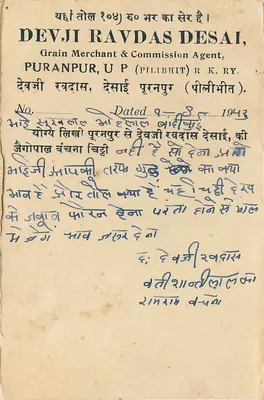 यहां तोल १०४) रु० भर का सेर है।
DEVJI RAVDAS DESAI,
Grain Merchant & Commission Agent,
PURANPUR, U P (PILIBHIT) R. K. RY.
देवजी रवदास, देसाई पूरनपुर (पीलीभीत).
No. Dated 1943
भाई
योग्य लिखी पूरनपुर से देवजी रवदास देसाई, की
जैगोपाल बंचना चिट्ठी नहीं है सो देना
भाईजी आपकी तरफ गुड़ का क्या
भाव है और तोल क्या है
के जवाब फोरन देना परता होने से माल
भाव जरूर देना
द: देवजी रवदास
शान्तीलाल का
रामराम